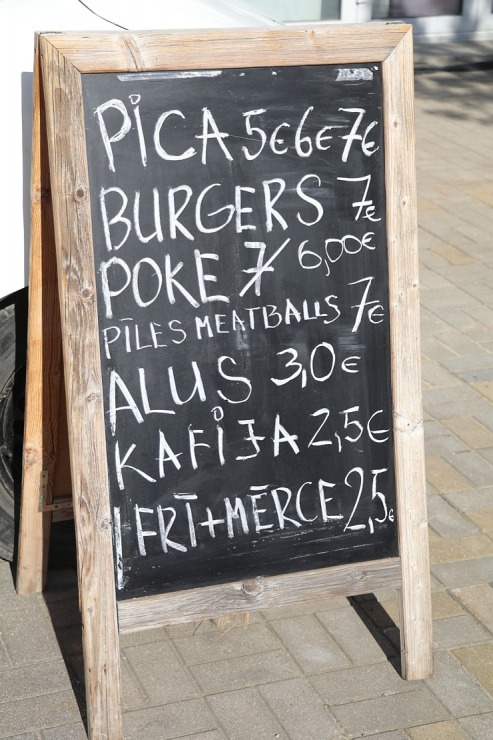 PiCA 5€ 6€ 7€
BURGERS 7€
POKE 7 6,00€
PĪLES MEATBALLS 7€
ALUS 3,0€
KAFiJA 2,5€
FRĪ+MĒRCE 2,5€